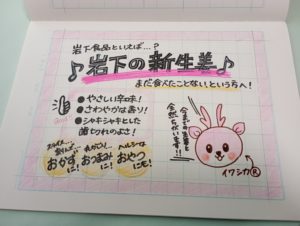 岩下食品といえば…?
♪岩下の新生姜♪
まだ食べたことない!という方へ!
●やさしい辛味!
●さわやかな香り!
●シャキシャキとした
歯切れのよさ!
おかずに!
おつまみに!
ヘルシーな
おやつ
にも!
今までの生姜と
全然ちがいます!!
イワシカ®